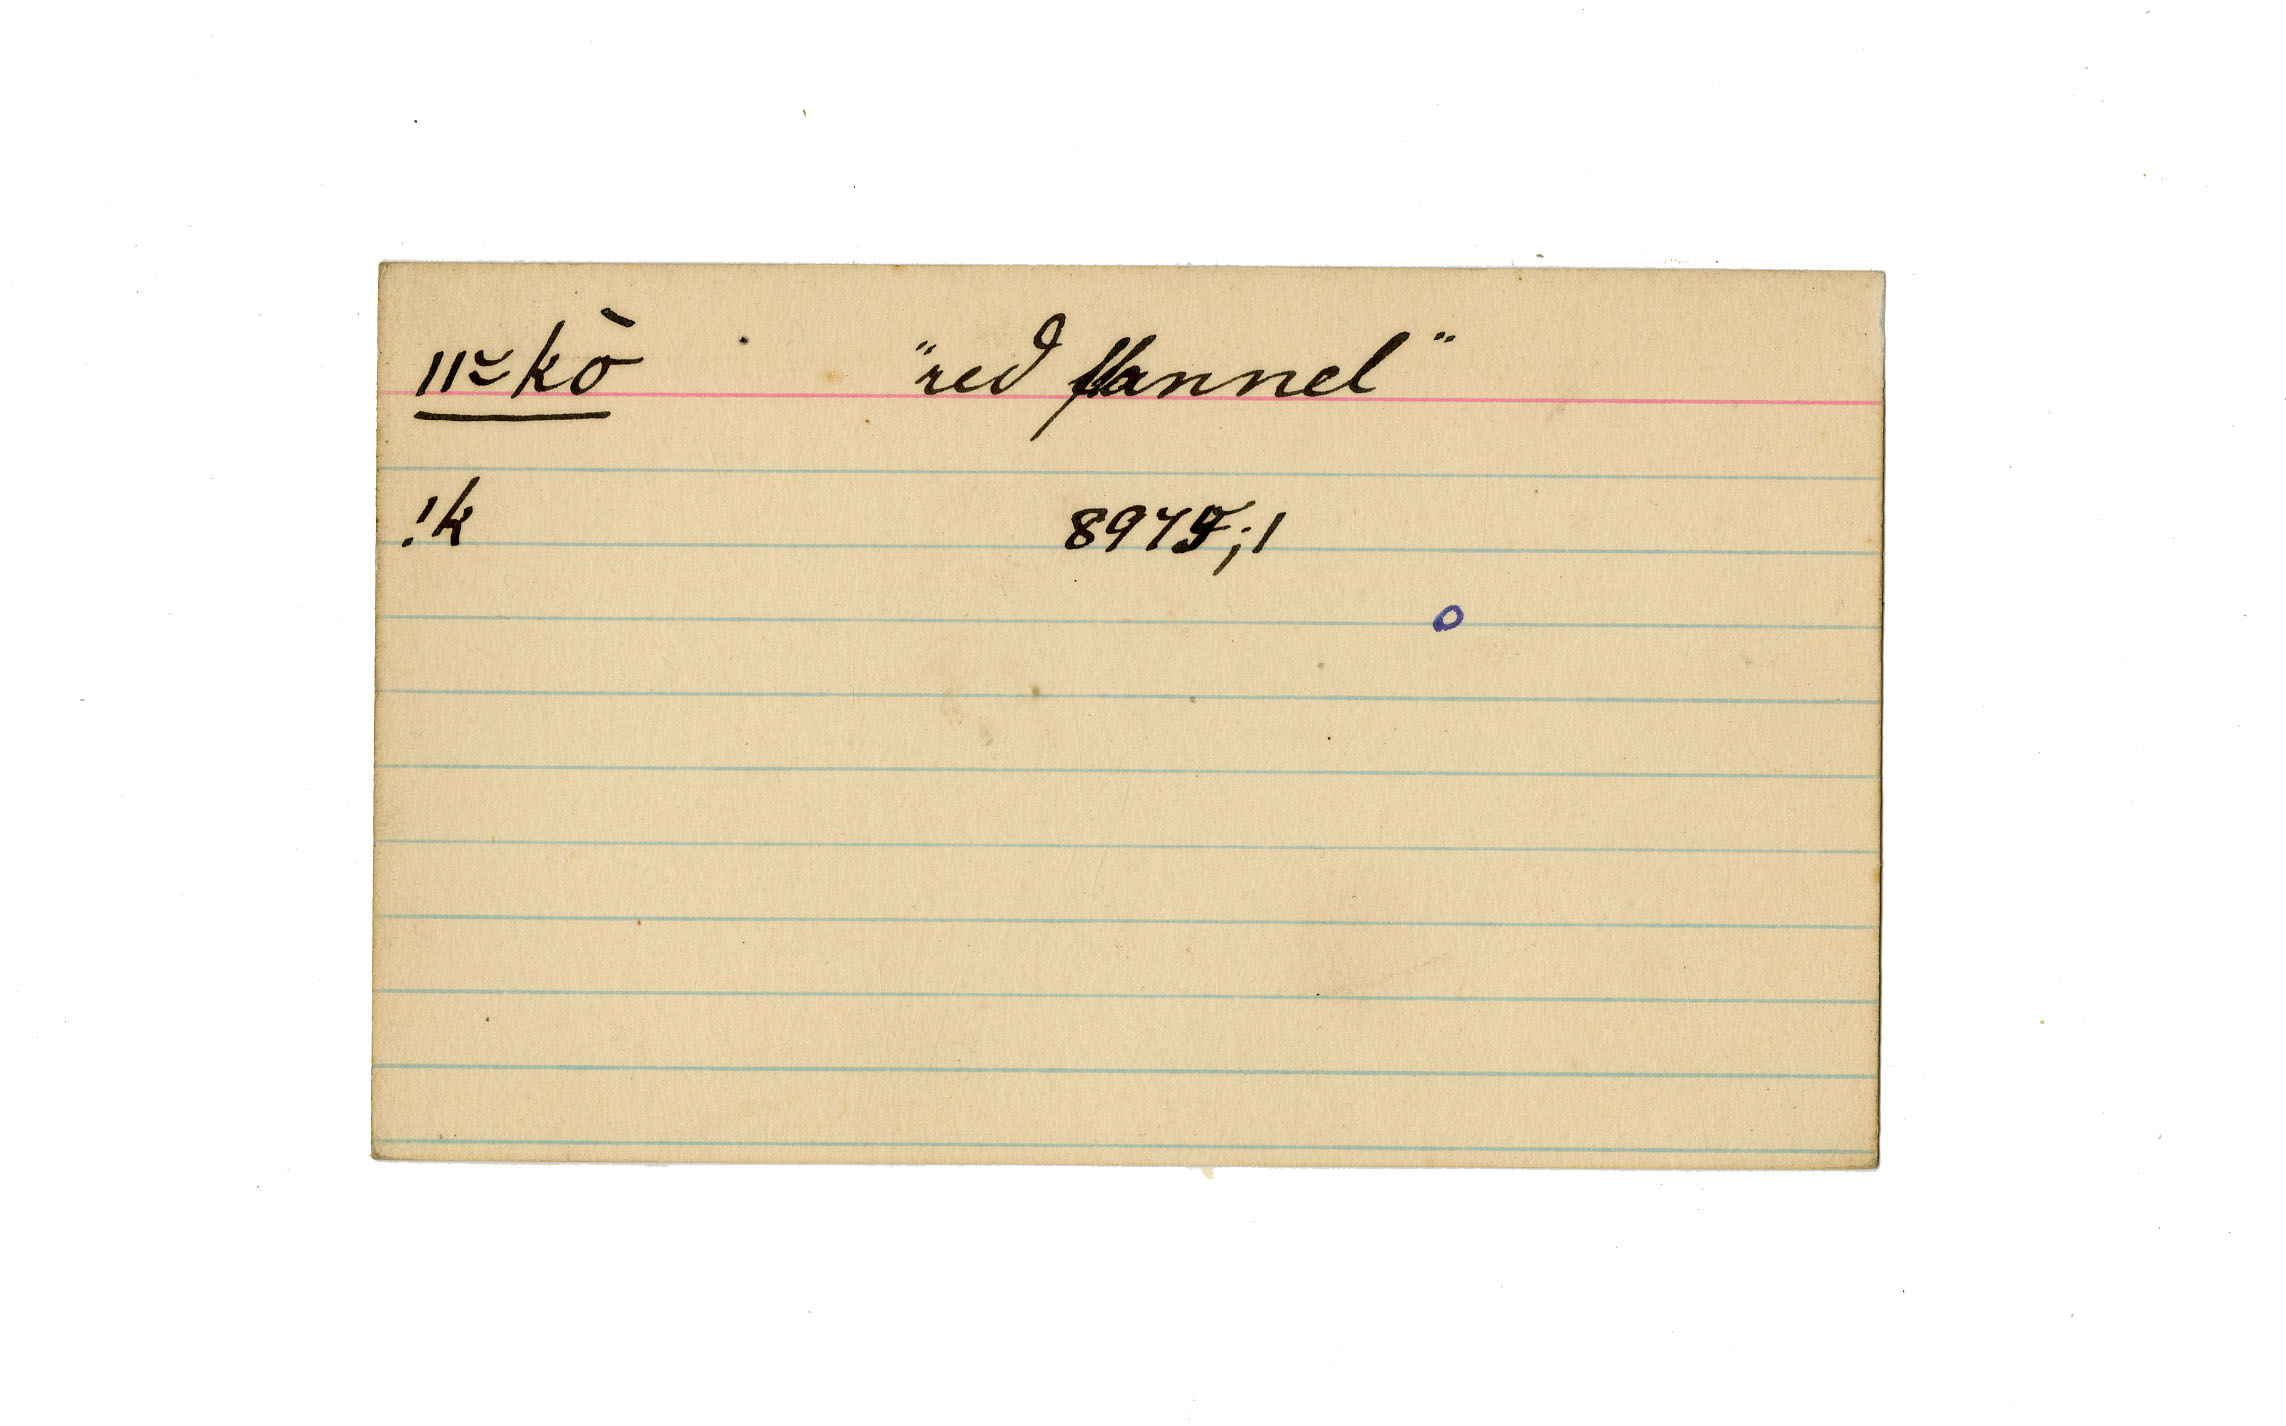 ǁ≍kò "red flannel"
!k 8975;1
o